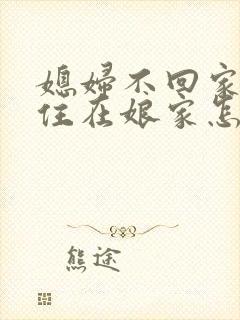 媳婦不回家
住在娘家怎
熊途